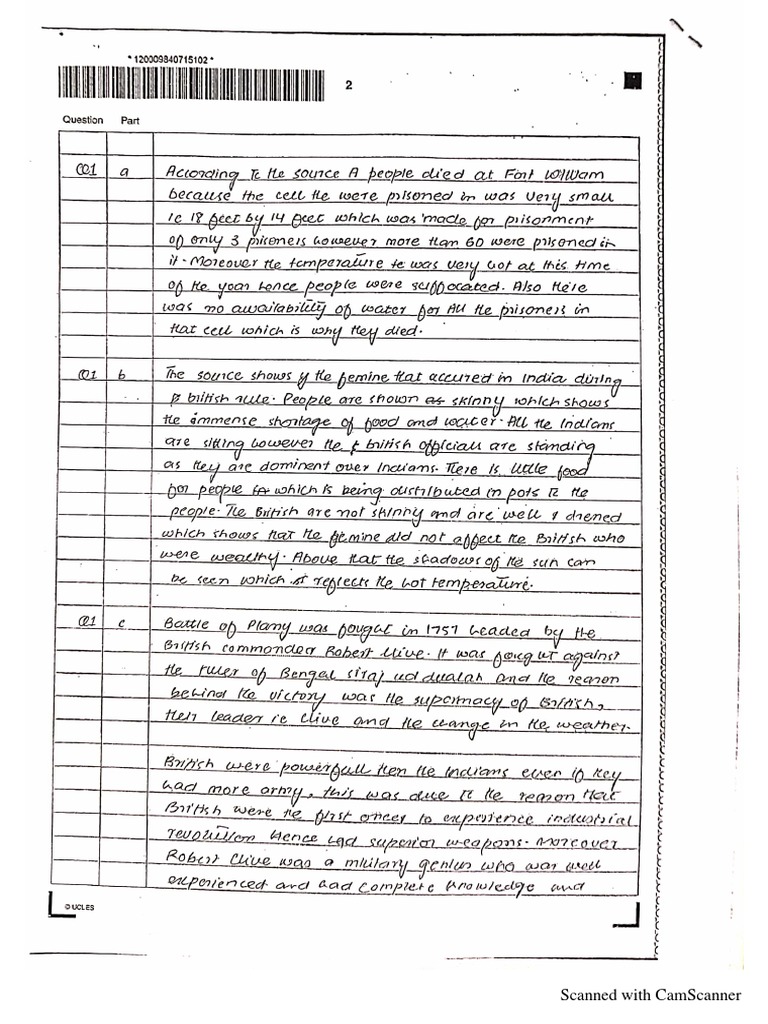 *120009840715102*
2
Question Part
Q1 a According to the source A people died at Fort William
because the cell the were prisoned in was very small
ie 18 feet by 14 feet which was made for prisonment
of only 3 prisoners however more than 60 were prisoned in
it. Moreover the temperature was very hot at this time
of the year hence people were suffocated. Also there
was no availability of water for All the prisoners in
that cell which is why they died.
Q1 b The source shows the femine that accured in India during
british rule. People are shown as skinny which shows
the immense shortage of food and water. All the Indians
are sitting however the british officials are standing
as they are dominent over Indians. There is little food
for people which is being distributed in pots to the
people. The British are not skinny and are well dressed
which shows that the femine did not affect the British who
were wealthy. Above that the shadows of the sun can
be seen which reflects the hot temperature.
Q1 c Battle of Plassy was fought in 1757 headed by the
British commander Robert Clive. It was fought against
the ruler of Bengal siraj ud dualah and the reason
behind the victory was the supermacy of British,
their leader ie Clive and the change in the weather.
British were powerfull then the Indians even if they
had more army, this was due to the reason that
British were the first onces to experience industrial
revolution Hence had superior weapons. Moreover
Robert Clive was a military genius who was well
experienced and had complete knowledge and
© UCLES
Scanned with CamScanner